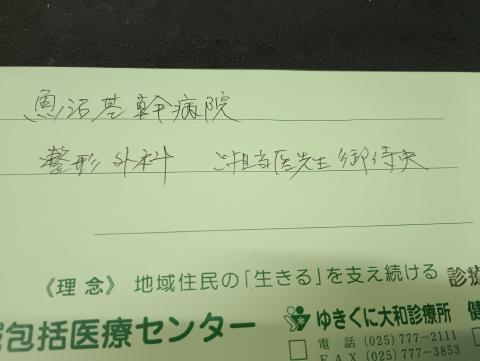 魚沼基幹病院
整形外科 ご担当医先生 御待史
《理念》 地域住民の「生きる」を支え続ける 診療
包括医療センター ゆきぐに大和診療所 健
電話 (025)777-2111
FAX (025)777-3853